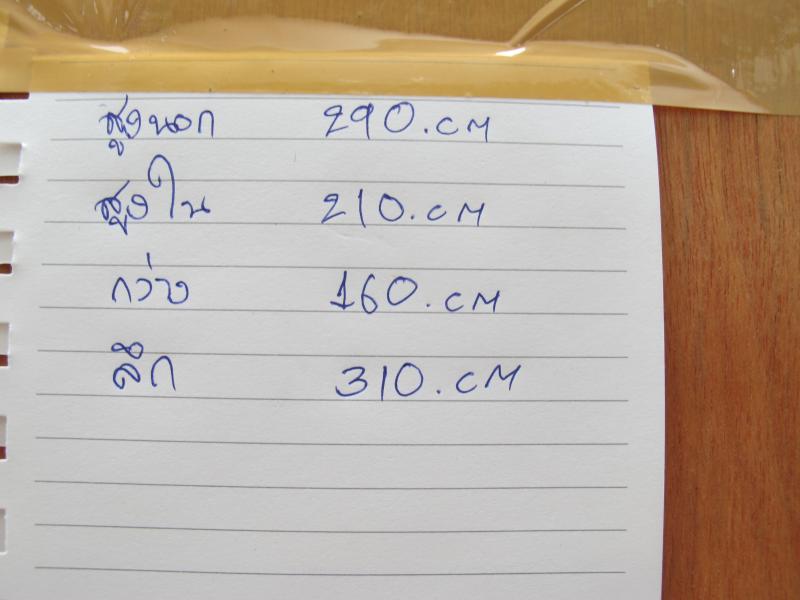 สูงนอก 290.cm
สูงใน 210.cm
กว่าง 160.cm
ลึก 310.cm